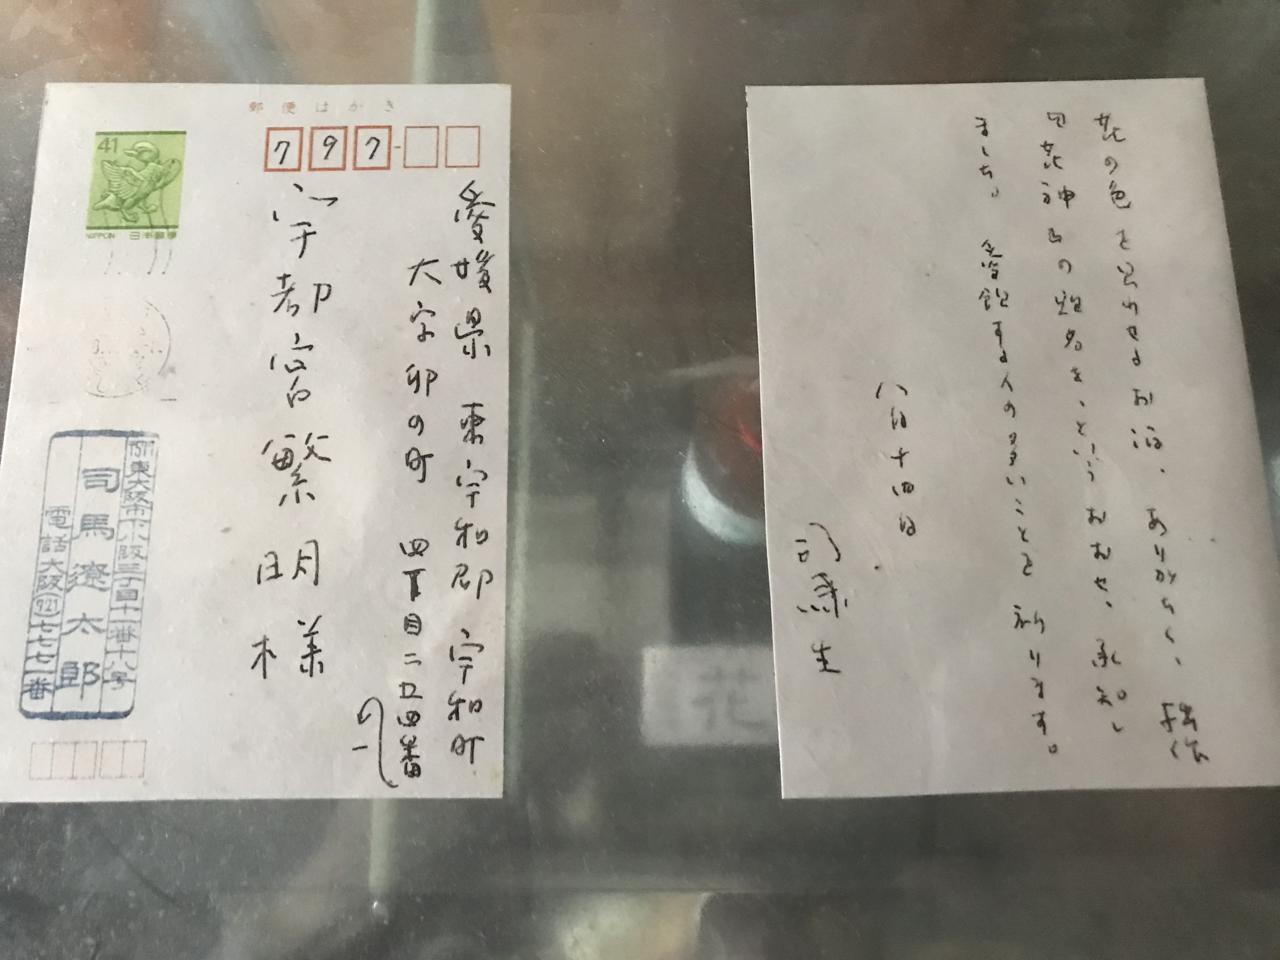 郵便はがき
797-
愛媛県 東宇和郡 宇和町
大字卯の町 四丁目二五四番
の一
宇都宮繁明様
41
NIPPON 日本郵便
東大阪市下小阪三丁目十一番十八号
司馬遼太郎
電話大阪(721)七七七一番
花の色を思わせるお酒、ありがたく、拙作
「花神」の題名を、というおもむき、承知し
ました。愛飲する人の多いことを祈ります。
八月十四日
司馬生
花